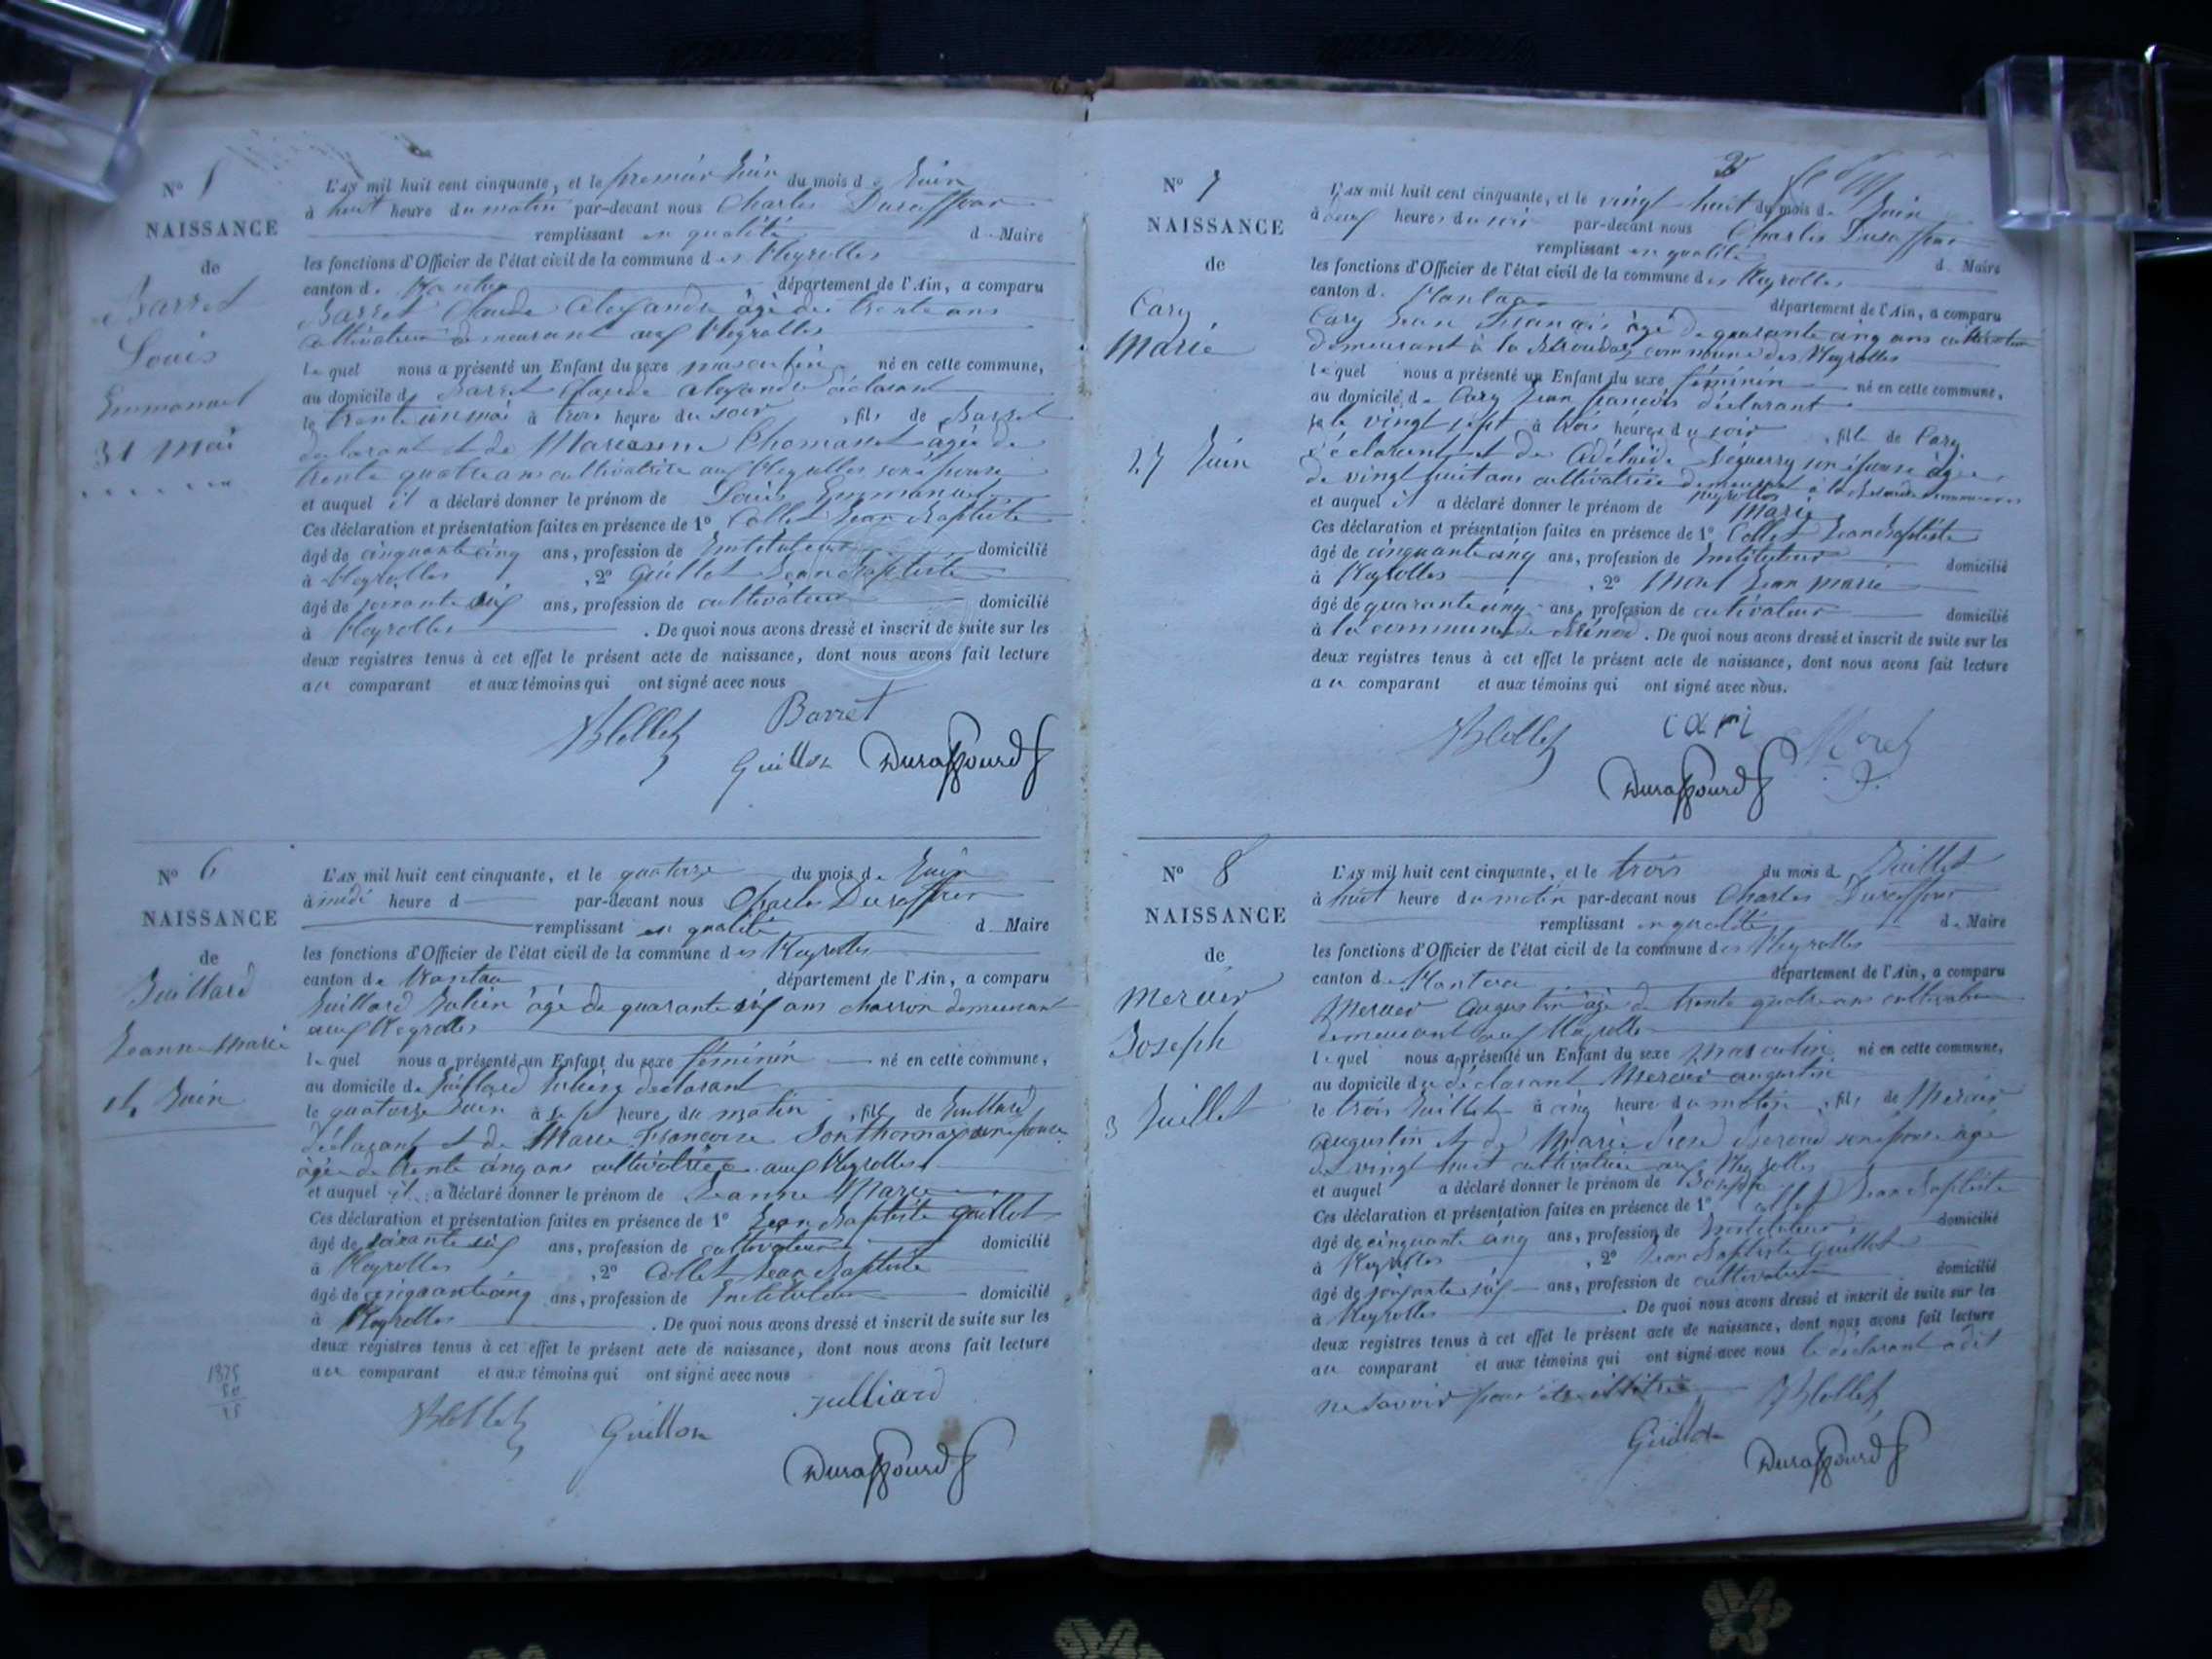 N° 5
NAISSANCE
de
Barret
Louis
Emmanuel
31 Mai
L'AN mil huit cent cinquante, et le premier Juin du mois de Juin
à huit heure du matin par-devant nous Charles Duraffour
remplissant en qualité de Maire
les fonctions d'Officier de l'état civil de la commune des Neyrolles
canton de Nantua département de l'Ain, a comparu
Barret Claude Alexandre âgé de trente ans
cultivateur demeurant aux Neyrolles
lequel nous a présenté un Enfant du sexe masculin né en cette commune,
au domicile de Barret Claude Alexandre déclarant
le trente un mai à trois heure du soir, fils de Barret
déclarant et de Marianne Chomanet agée de
trente quatre ans cultivatrice aux Neyrolles son épouse
et auquel il a déclaré donner le prénom de Louis Emmanuel
Ces déclaration et présentation faites en présence de 1° Collet Jean Baptiste
âgé de cinquante cinq ans, profession de Instituteur domicilié
à Neyrolles, 2° Guillot Jean Baptiste
âgé de soixante six ans, profession de cultivateur domicilié
à Neyrolles. De quoi nous avons dressé et inscrit de suite sur les
deux registres tenus à cet effet le présent acte de naissance, dont nous avons fait lecture
au comparant et aux témoins qui ont signé avec nous
JBCollet Barret
Guillot Duraffourd
N° 6
NAISSANCE
de
Juillard
Jeanne Marie
14 Juin
L'AN mil huit cent cinquante, et le quatorze du mois de Juin
à midi heure d par-devant nous Charles Duraffour
remplissant en qualité de Maire
les fonctions d'Officier de l'état civil de la commune des Neyrolles
canton de Nantua département de l'Ain, a comparu
Juillard Julien âgé de quarante six ans charron demeurant
aux Neyrolles
lequel nous a présenté un Enfant du sexe féminin né en cette commune,
au domicile de Juillard Julien déclarant
le quatorze Juin à sept heure du matin, fille de Juillard
déclarant et de Marie Françoise Sonthonnax son épouse
âgée de trente cinq ans cultivatrice aux Neyrolles
et auquel il a déclaré donner le prénom de Jeanne Marie
Ces déclaration et présentation faites en présence de 1° Jean Baptiste Guillot
âgé de soixante six ans, profession de cultivateur domicilié
à Neyrolles, 2° Collet Jean Baptiste
âgé de cinquante cinq ans, profession de Instituteur domicilié
à Neyrolles. De quoi nous avons dressé et inscrit de suite sur les
deux registres tenus à cet effet le présent acte de naissance, dont nous avons fait lecture
au comparant et aux témoins qui ont signé avec nous
JBCollet Guillot Julliard
Duraffourd
N° 7
NAISSANCE
de
Cary
Marie
27 Juin
L'AN mil huit cent cinquante, et le vingt huit du mois de Juin
à neuf heures du soir par-devant nous Charles Duraffour
remplissant en qualité de Maire
les fonctions d'Officier de l'état civil de la commune des Neyrolles
canton de Nantua département de l'Ain, a comparu
Cary Jean François âgé de quarante cinq ans cultivateur
demeurant à la commune des Neyrolles
lequel nous a présenté un Enfant du sexe féminin né en cette commune,
au domicile de Cary Jean françois déclarant
le vingt sept à trois heures du soir, fille de Cary
déclarant et de Adélaïde son épouse âgée
de vingt huit ans cultivatrice demeurant à la
et auquel il a déclaré donner le prénom de Marie
Ces déclaration et présentation faites en présence de 1° Collet Jean Baptiste
âgé de cinquante cinq ans, profession de Instituteur domicilié
à Neyrolles, 2° Morel Jean Marie
âgé de quarante cinq ans, profession de cultivateur domicilié
à la commune de Brénod. De quoi nous avons dressé et inscrit de suite sur les
deux registres tenus à cet effet le présent acte de naissance, dont nous avons fait lecture
au comparant et aux témoins qui ont signé avec nous.
JBCollet cari Morel
Duraffourd
N° 8
NAISSANCE
de
Mercier
Joseph
3 Juillet
L'AN mil huit cent cinquante, et le trois du mois d Juillet
à huit heure du matin par-devant nous Charles Duraffour
remplissant en qualité de Maire
les fonctions d'Officier de l'état civil de la commune des Neyrolles
canton de Nantua département de l'Ain, a comparu
Mercier Augustin âgé de trente quatre ans cultivateur
demeurant aux Neyrolles
lequel nous a présenté un Enfant du sexe masculin né en cette commune,
au domicile du déclarant Mercier augustin
le trois Juillet à cinq heure du matin, fils de Mercier
augustin et de Marie son épouse âgée
de vingt huit cultivatrice aux Neyrolles
et auquel a déclaré donner le prénom de Joseph
Ces déclaration et présentation faites en présence de 1° Collet Jean Baptiste
âgé de cinquante cinq ans, profession de Instituteur domicilié
à Neyrolles, 2° Jean Baptiste Guillot
âgé de soixante six ans, profession de cultivateur domicilié
à Neyrolles. De quoi nous avons dressé et inscrit de suite sur les
deux registres tenus à cet effet le présent acte de naissance, dont nous avons fait lecture
au comparant et aux témoins qui ont signé avec nous le déclarant a dit
ne savoir pour être illitré JBCollet
Guillot Duraffourd